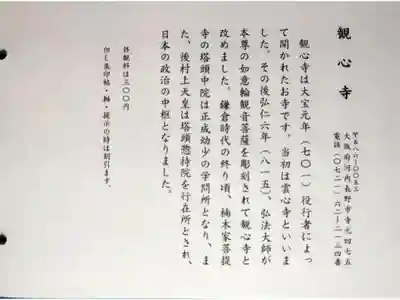 観心寺
〒五八六-〇〇五三
大阪府河内長野市寺元四七五
電話(〇七二一)六二-二一三四番
観心寺は大宝元年(七〇一)役行者によっ
て開かれたお寺です。当初は雲心寺といいま
した。その後弘仁六年(八一五)、弘法大師が
本尊の如意輪観音菩薩を彫刻されて観心寺と
改めました。鎌倉時代の終り頃、楠木家菩提
寺の塔頭中院は正成幼少の学問所となり、ま
た、後村上天皇は塔頭惣持院を行在所とされ、
日本の政治の中枢となりました。
拝観料は三〇〇円
但し朱印帖・軸・提示の時は割引ます。